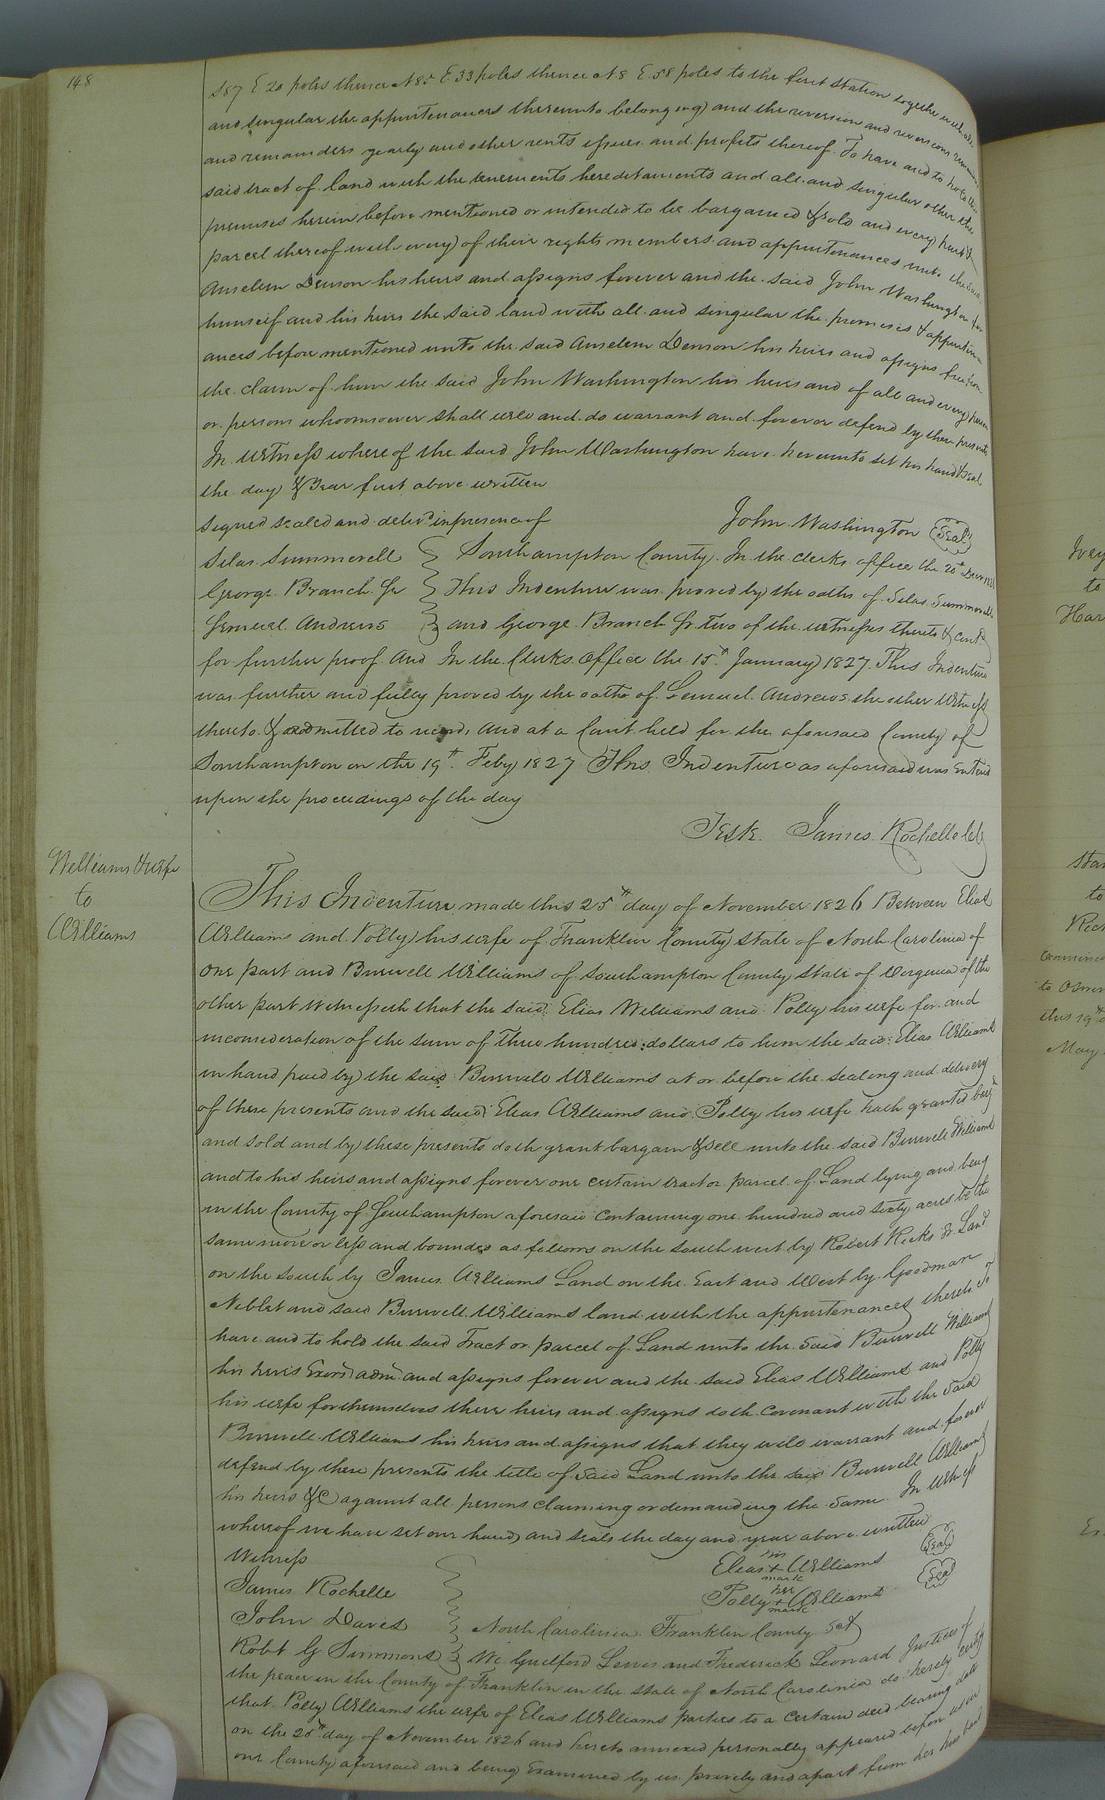 148
S87 E 20 poles thence N85 E 33 poles thence N8 E 58 poles to the first station together with all
and singular the appurtenances thereunto belonging and the reversion and reversions remainder
and remainders yearly and other rents issues and profits thereof To have and to hold the
said tract of land with the tenements hereditaments and all and singular other the
premises herein before mentioned or intended to be bargained & sold and every part &
parcel thereof with every of their rights members and appurtenances unto the said
Anselem Denson his heirs and assigns forever and the said John Washington for
himself and his heirs the said land with all and singular the premises & appurten
ances before mentioned unto the said Anselem Denson his heirs and assigns free from
the claim of him the said John Washington his heirs and of all and every person
or persons whoomsoever shall will and do warrant and forever defend by these presents
In witness whereof the said John Washington have hereunto set his hand & seal
the day & Year first above written
Signed sealed and delivd in presence of
John Washington Seal
Silas Summerell
George Branch Jr
Lemuel Andrews
Southampton County In the clerks office the 20th
This Indenture was proved by the oaths of Silas Summerell
and George Branch Jr two of the witnesses thereto & contd
for further proof And In the Clerks Office the 15th January 1827 This Indenture
was further and fully proved by the oath of Lemuel Andrews the other Witness
thereto & admitted to record, And at a Court held for the aforesaid County of
Southampton on the 19th Feby 1827 This Indenture as aforesaid was Entered
upon the proceedings of the day
Teste James Rochelle clk
Williams & wife
to
Williams
This Indenture made this 25th day of November 1826 Between Elias
Williams and Polly his wife of Franklin County state of North Carolinia of
one part and Burwell Williams of Southampton County State of Verginia of the
other part Witnesseth that the said Elias Williams and Polly his wife for and
inconsideration of the sum of Three hundred dollars to him the said Elias Williams
in hand paid by the said Burwell Williams at or before the sealing and delivery
of these presents and the said Elias Williams and Polly his wife hath granted barg
and sold and by these presents doth grant bargain & sell unto the said Burwell Williams
and to his heirs and assigns forever one certain tract or parcel of Land lying and being
in the County of Southampton aforesaid containing one hundred and sixty acres be the
same more or less and bounded as follows on the south west by Robert Ricks Sr Land
on the south by James Williams Land on the East and West by Goodman
Neblet and said Burwell Williams land with the appurtenances thereto To
have and to hold the said Tract or parcel of Land unto the said Burwell Williams
his heirs Exors admr and assigns forever and the said Elias Williams and Polly
his wife for themselves there heirs and assigns doth covenant with the said
Burwell Williams his heirs and assigns that they will warrant and forever
defend by these presents the title of said Land unto the said Burwell Williams
his heirs &C against all persons claiming or demanding the same In Witness
whereof we have set our hand and seals the day and year above written
Witness
James Rochelle
John Daves
Robt G Simmons
Elias his + mark Williams Seal
Polly her + mark Williams Seal
North Carolinia Franklin County Sct
We Guilford Lewis and Frederick Leonard Justices of
the peace in the County of Franklin in the state of North Carolinia do hereby certify
that Polly Williams the wife of Elias Williams parties to a certain deed bearing date
on the 25th day of November 1826 and hereto annexed personally appeared before us in
our County aforesaid and being Examined by us privily and apart from her husband
to
Har
Sta
to
to
May